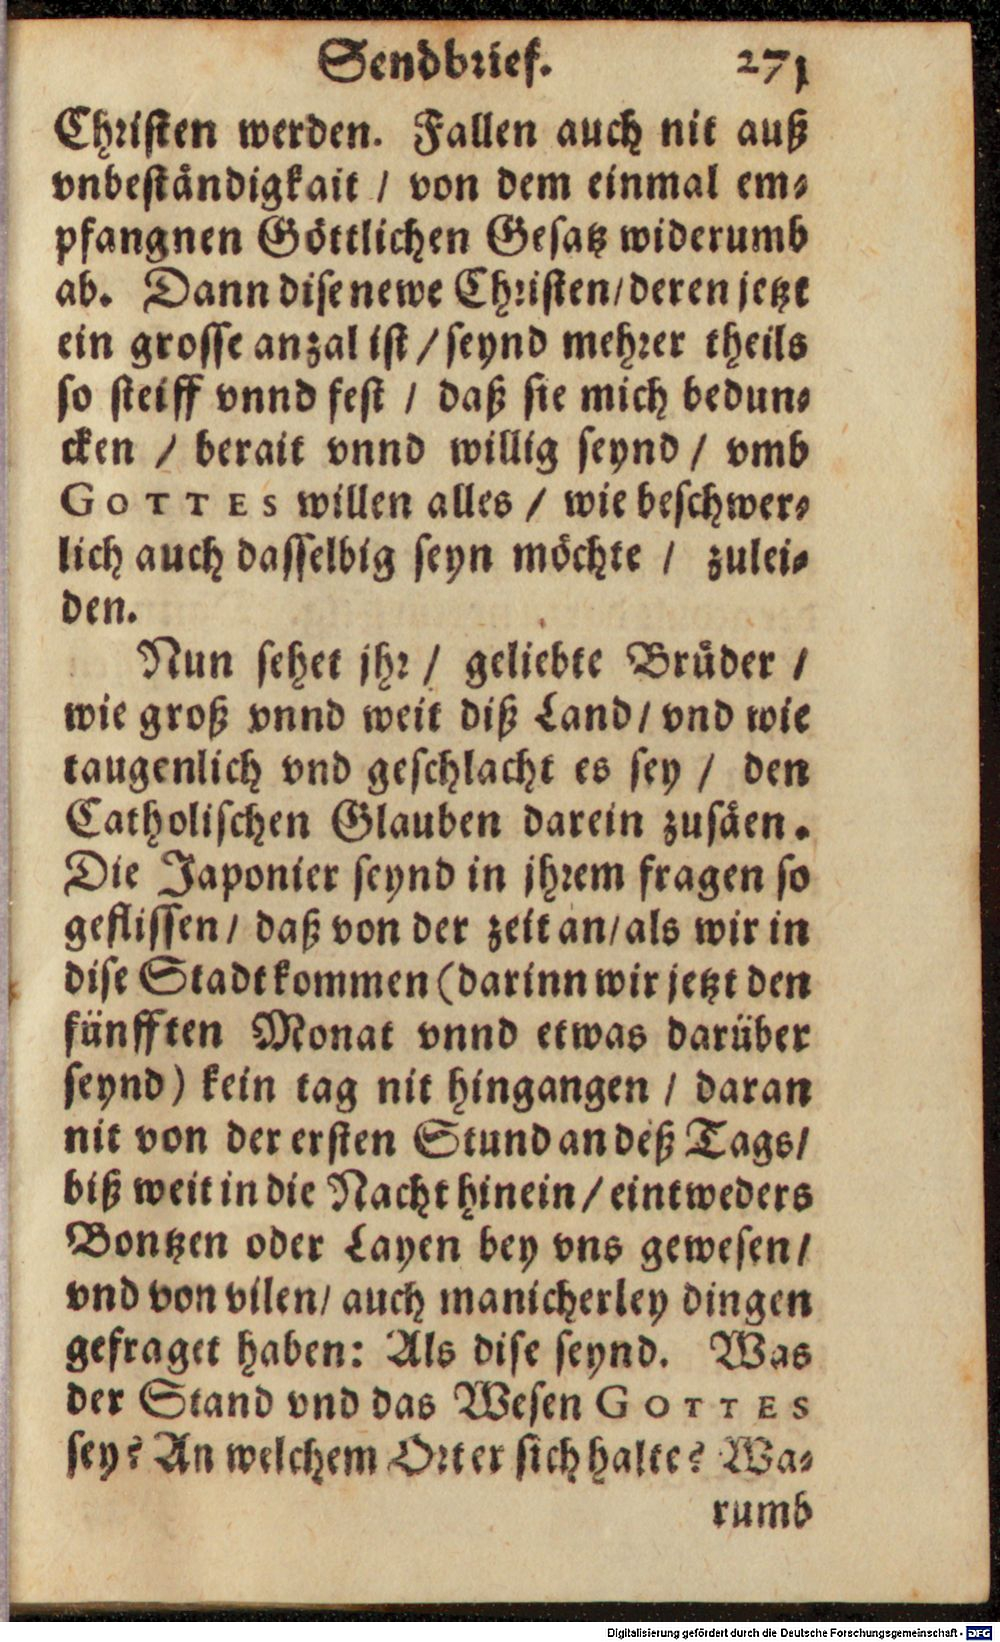 Sendbrief. 271
Christen werden. Fallen auch nit auß
vnbeständigkait / von dem einmal em⸗
pfangnen Göttlichen Gesatz widerumb
ab. Dann dise newe Christen / deren jetzt
ein grosse anzal ist / seynd mehrer theils
so steiff vnnd fest / daß sie mich bedun⸗
cken / berait vnnd willig seynd / vmb
GOTTES willen alles / wie beschwer⸗
lich auch dasselbig seyn möchte / zulei⸗
den.
Nun sehet jhr / geliebte Brüder /
wie groß vnnd weit diß Land / vnd wie
taugenlich vnd geschlacht es sey / den
Catholischen Glauben darein zusäen.
Die Japonier seynd in jhrem fragen so
geflissen / daß von der zeit an / als wir in
dise Stadt kommen (darinn wir jetzt den
fünfften Monat vnnd etwas darüber
seynd) kein tag nit hingangen / daran
nit von der ersten Stund an deß Tags /
biß weit in die Nacht hinein / eintweders
Bontzen oder Layen bey vns gewesen /
vnd von vilen / auch manicherley dingen
gefraget haben: Als dise seynd. Was
der Stand vnd das Wesen GOTTES
sey? An welchem Ort er sich halte? Wa⸗
rumb
Digitalisierung gefördert durch die Deutsche Forschungsgemeinschaft - DFG